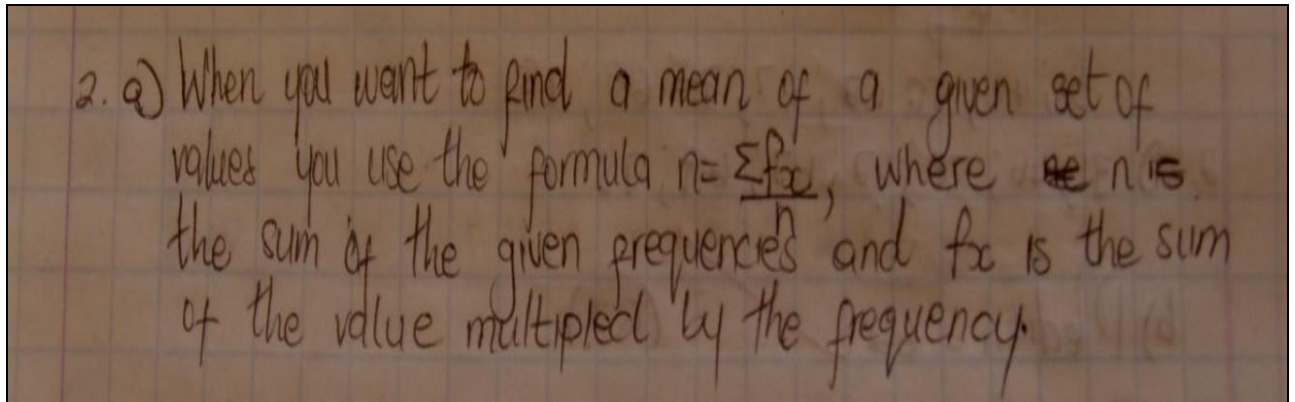 2. a) When you want to find a mean of a given set of
values you use the formula n= Σfx/n, where n is
the sum of the given frequencies and fx is the sum
of the value multiplied by the frequency.